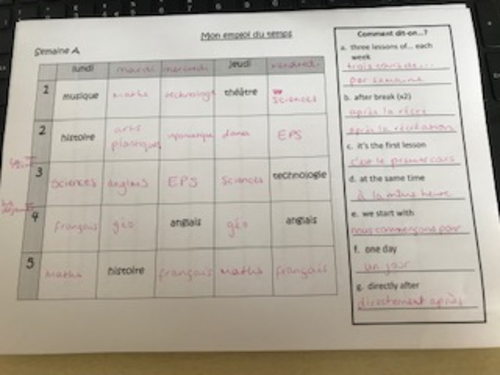 Mon emploi du temps
Semaine A
lundi mardi mercredi jeudi vendredi
1 musique maths technologie théâtre sciences
2 histoire arts plastiques informatique danse EPS
3 sciences anglais EPS sciences technologie
4 français géo anglais géo anglais
5 maths histoire français maths français
Comment dit-on...?
a. three lessons of... each
week
trois cours de...
par semaine
b. after break (x2)
après la récré
après la récréation
c. it's the first lesson
c'est le premier cours
d. at the same time
à la même heure
e. we start with
nous commençons par
f. one day
un jour
g. directly after
directement après